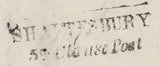 SHAFTESBURY
5th Clause Post